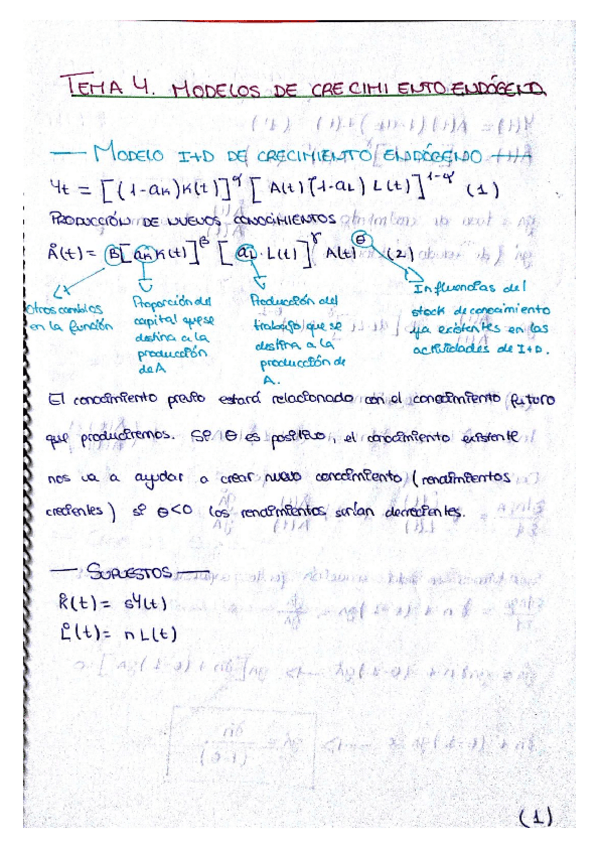 TEMA 4. MODELOS DE CRECIMIENTO ENDÓGENO
— MODELO I+D DE CRECIMIENTO ENDÓGENO
Yt = [(1-aK)K(t)]^α [A(t)(1-aL)L(t)]^1-α (1)
PRODUCCIÓN DE NUEVOS CONOCIMIENTOS
Å(t) = B[aK K(t)]^β [aL·L(t)]^γ A(t)^θ (2)
Otros cambios
en la función
Proporción del
capital que se
destina a la
producción
de A
Producción del
trabajo que se
destina a la
producción de
A.
Influencias del
stock de conocimiento
ya existentes en las
actividades de I+D.
El conocimiento previo estará relacionado con el conocimiento futuro
que produciremos. Si θ es positivo, el conocimiento existente
nos va a ayudar a crear nuevo conocimiento (rendimientos
crecientes) si θ<0 los rendimientos serían decrecientes.
— SUPUESTOS —
K̊(t) = sY(t)
L̊(t) = nL(t)
(1)